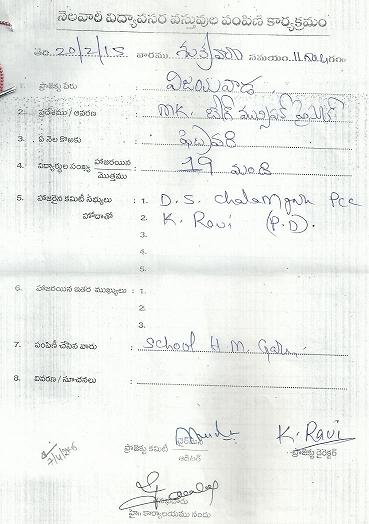 నెలవారీ విద్యావసర వస్తువుల పంపిణీ కార్యక్రమం
తేది. 20/2/15 వారము. శుక్రవారం సమయం. 11 గం
1. ప్రాజెక్టు పేరు : విజయవాడ.
2. ప్రదేశము / ఆవరణ : MK. బేగ్ మున్సిపల్ హైస్కూల్
3. ఏ నెల కొఱకు : ఫిబ్రవరి
4. విద్యార్థుల సంఖ్య హాజరయిన మొత్తము : 19 మంది
5. హాజరైన కమిటీ సభ్యులు : 1. D. S. Chalam garu PCC
హోదాతో 2. K. Ravi (P.D).
3.
4.
5.
6. హాజరయిన ఇతర ముఖ్యులు : 1.
2.
3.
7. పంపిణీ చేసిన వారు : School H M. Garu
8. వివరణ / సూచనలు :
K. Ravi
ప్రాజెక్టు కమిటీ చైర్మన్ ప్రాజెక్టు డైరెక్టర్
ఆడిటర్
హై. కార్యాలయము నందు